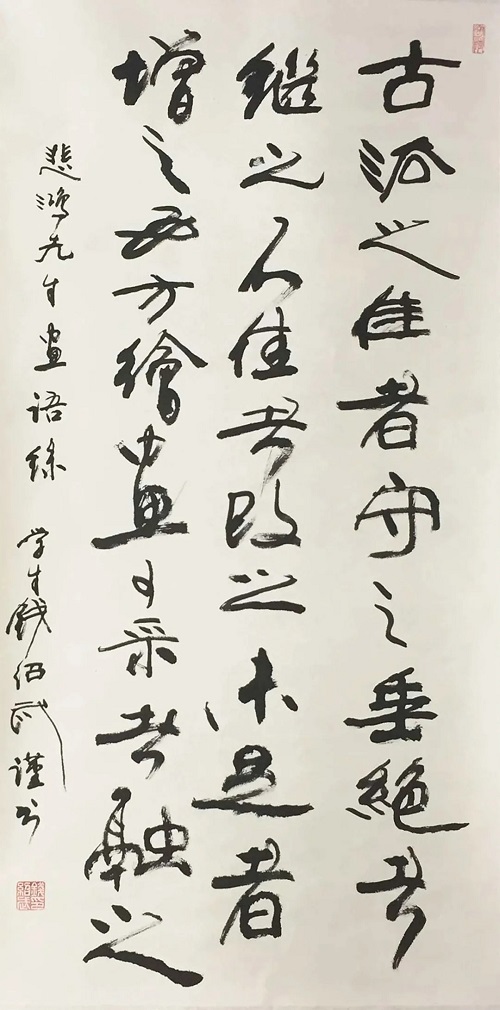 古法之佳者守之垂絕者
继之不佳者改之未足者
增之西方繪畫可采者融之
悲鴻先生畫语錄 学生錢绍武谨书